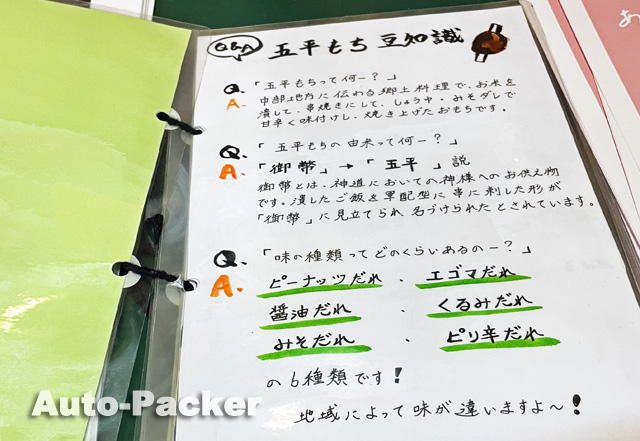 Q&A 五平もち 豆知識
Q. 「五平もちって何ー？」
A. 中部地方に伝わる郷土料理で、お米を
潰して、串焼きにして、しょうゆ・みそダレで
甘辛く味付けし、焼き上げたおもちです。
Q. 「五平もちの由来って何ー？」
A. 「御幣」→「五平」説
御幣とは、神道においての神様へのお供え物
です。潰したご飯を軍配型に串に刺した形が
「御幣」に見立てられ名づけられたとされています。
Q. 「味の種類ってどのくらいあるのー？」
A. ピーナッツだれ ・ エゴマだれ
醤油だれ ・ くるみだれ
みそだれ ・ ピリ辛だれ
の6種類です！
地域によって味が違いますよ～！
Auto-Packer